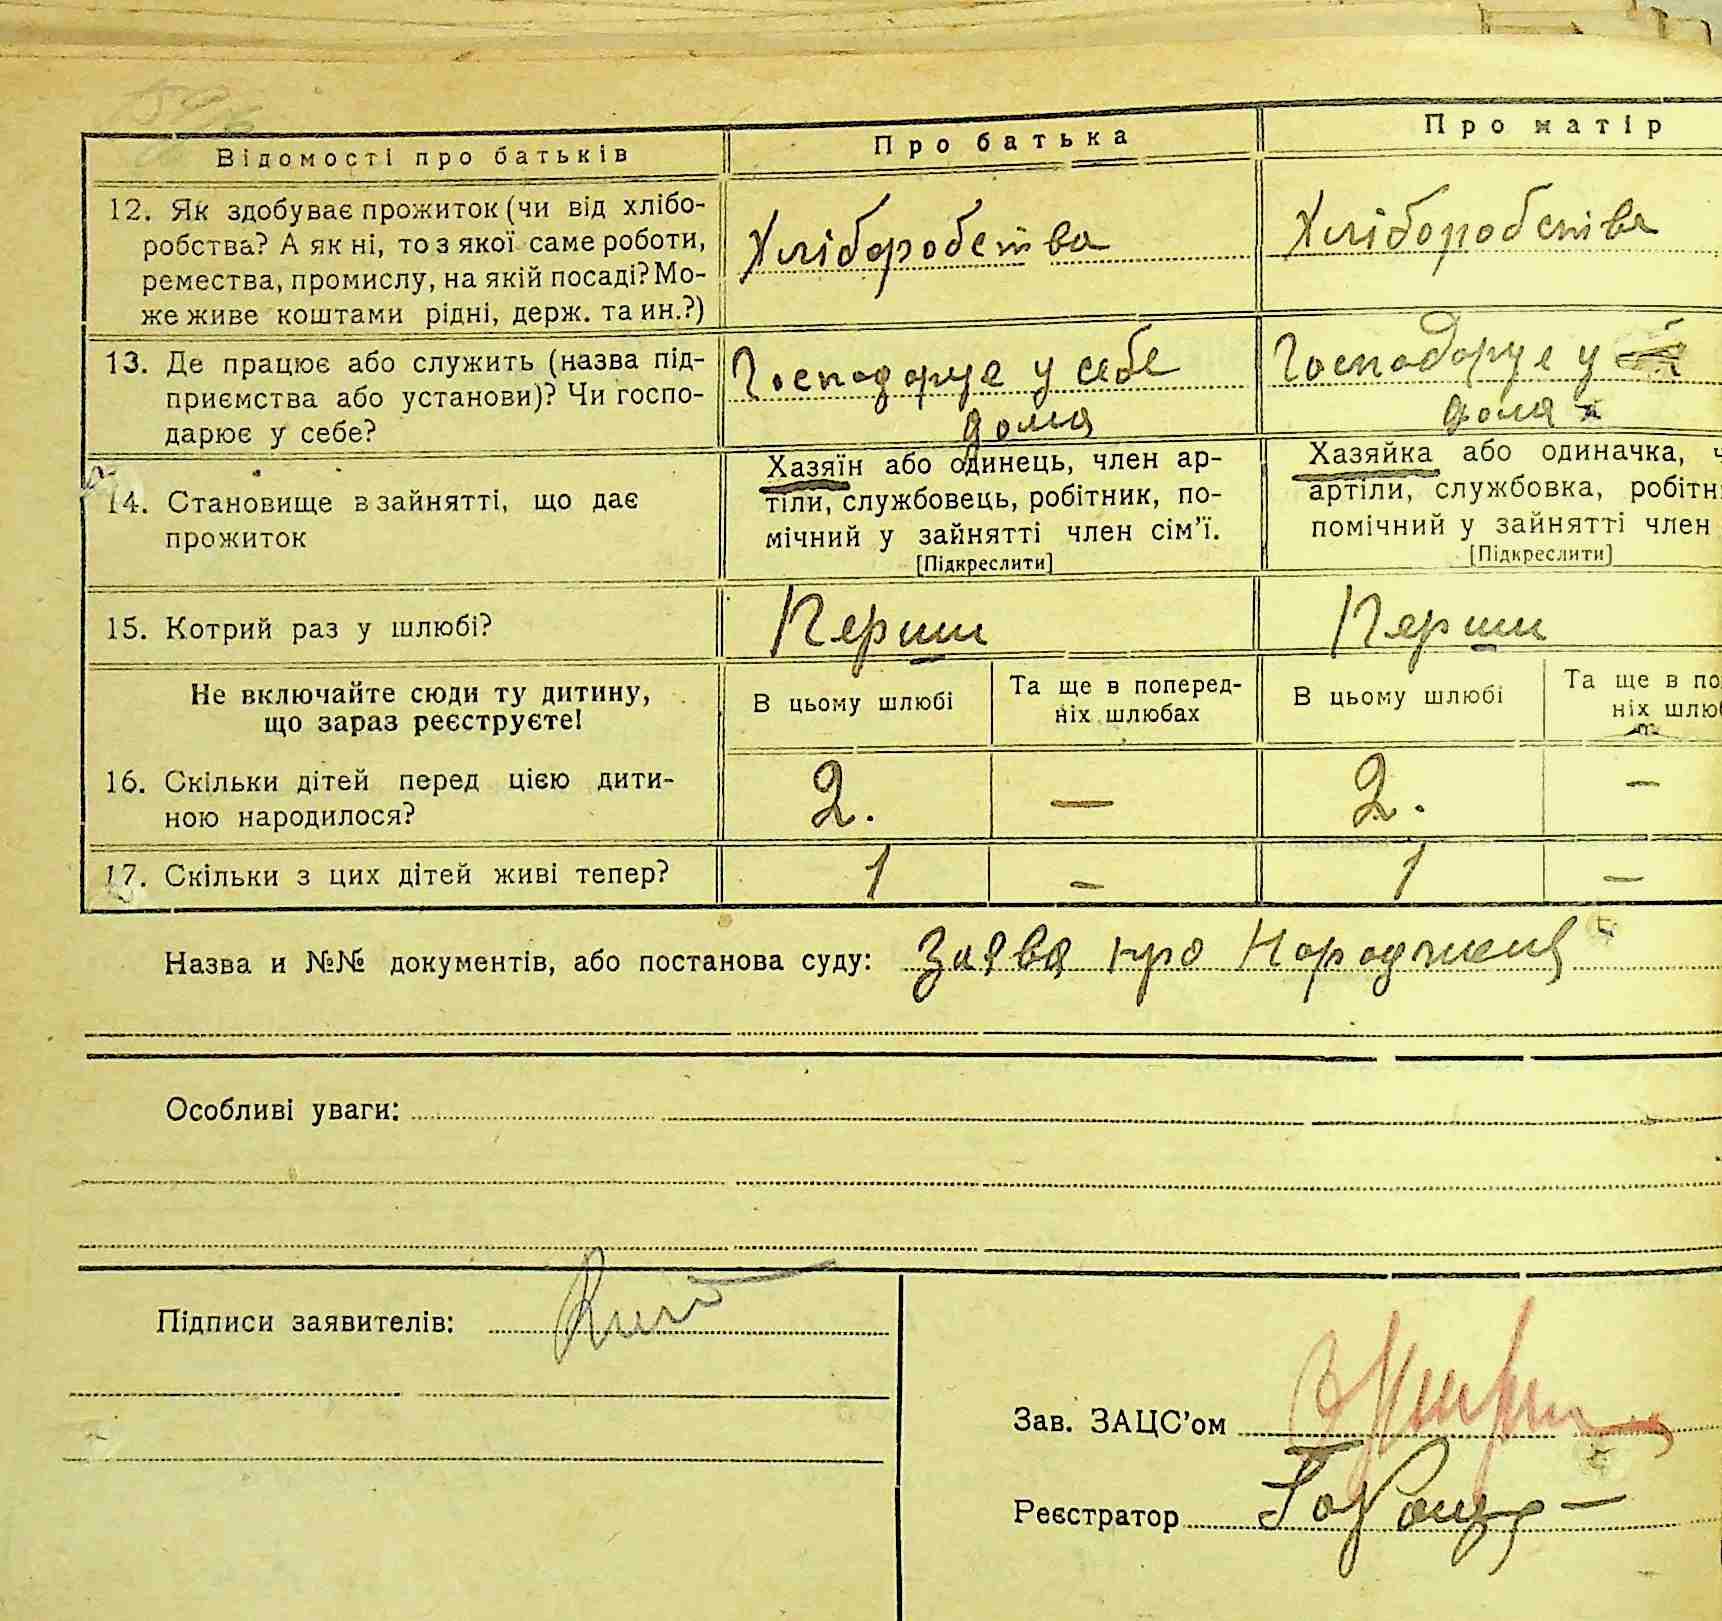 Відомості про батьків
Про батька
Про матір
12. Як здобуває прожиток (чи від хлібо-
робства? А як ні, то з якої саме роботи,
ремества, промислу, на якій посаді? Мо-
же живе коштами рідні, держ. та ин.?)
Хліборобства
Хліборобства
13. Де працює або служить (назва під-
приємства або установи)? Чи госпо-
дарює у себе?
Господарує у себе
дома
Господарує у
дома
14. Становище в зайнятті, що дає
прожиток
Хазяїн або одинець, член ар-
тіли, службовець, робітник, по-
мічний у зайнятті член сім'ї.
[Підкреслити]
Хазяйка або одиначка, ч
артіли, службовка, робітн
помічний у зайнятті член
[Підкреслити]
15. Котрий раз у шлюбі?
Перши
Перши
Не включайте сюди ту дитину,
що зараз реєструєте!
В цьому шлюбі
Та ще в поперед-
ніх шлюбах
В цьому шлюбі
Та ще в по
ніх шлю
16. Скільки дітей перед цією дити-
ною народилося?
2. — 2. —
17. Скільки з цих дітей живі тепер?
1 — 1 —
Назва и №№ документів, або постанова суду: Заява про Народженя
Особливі уваги:
Підписи заявителів:
Зав. ЗАЦС'ом
Реєстратор